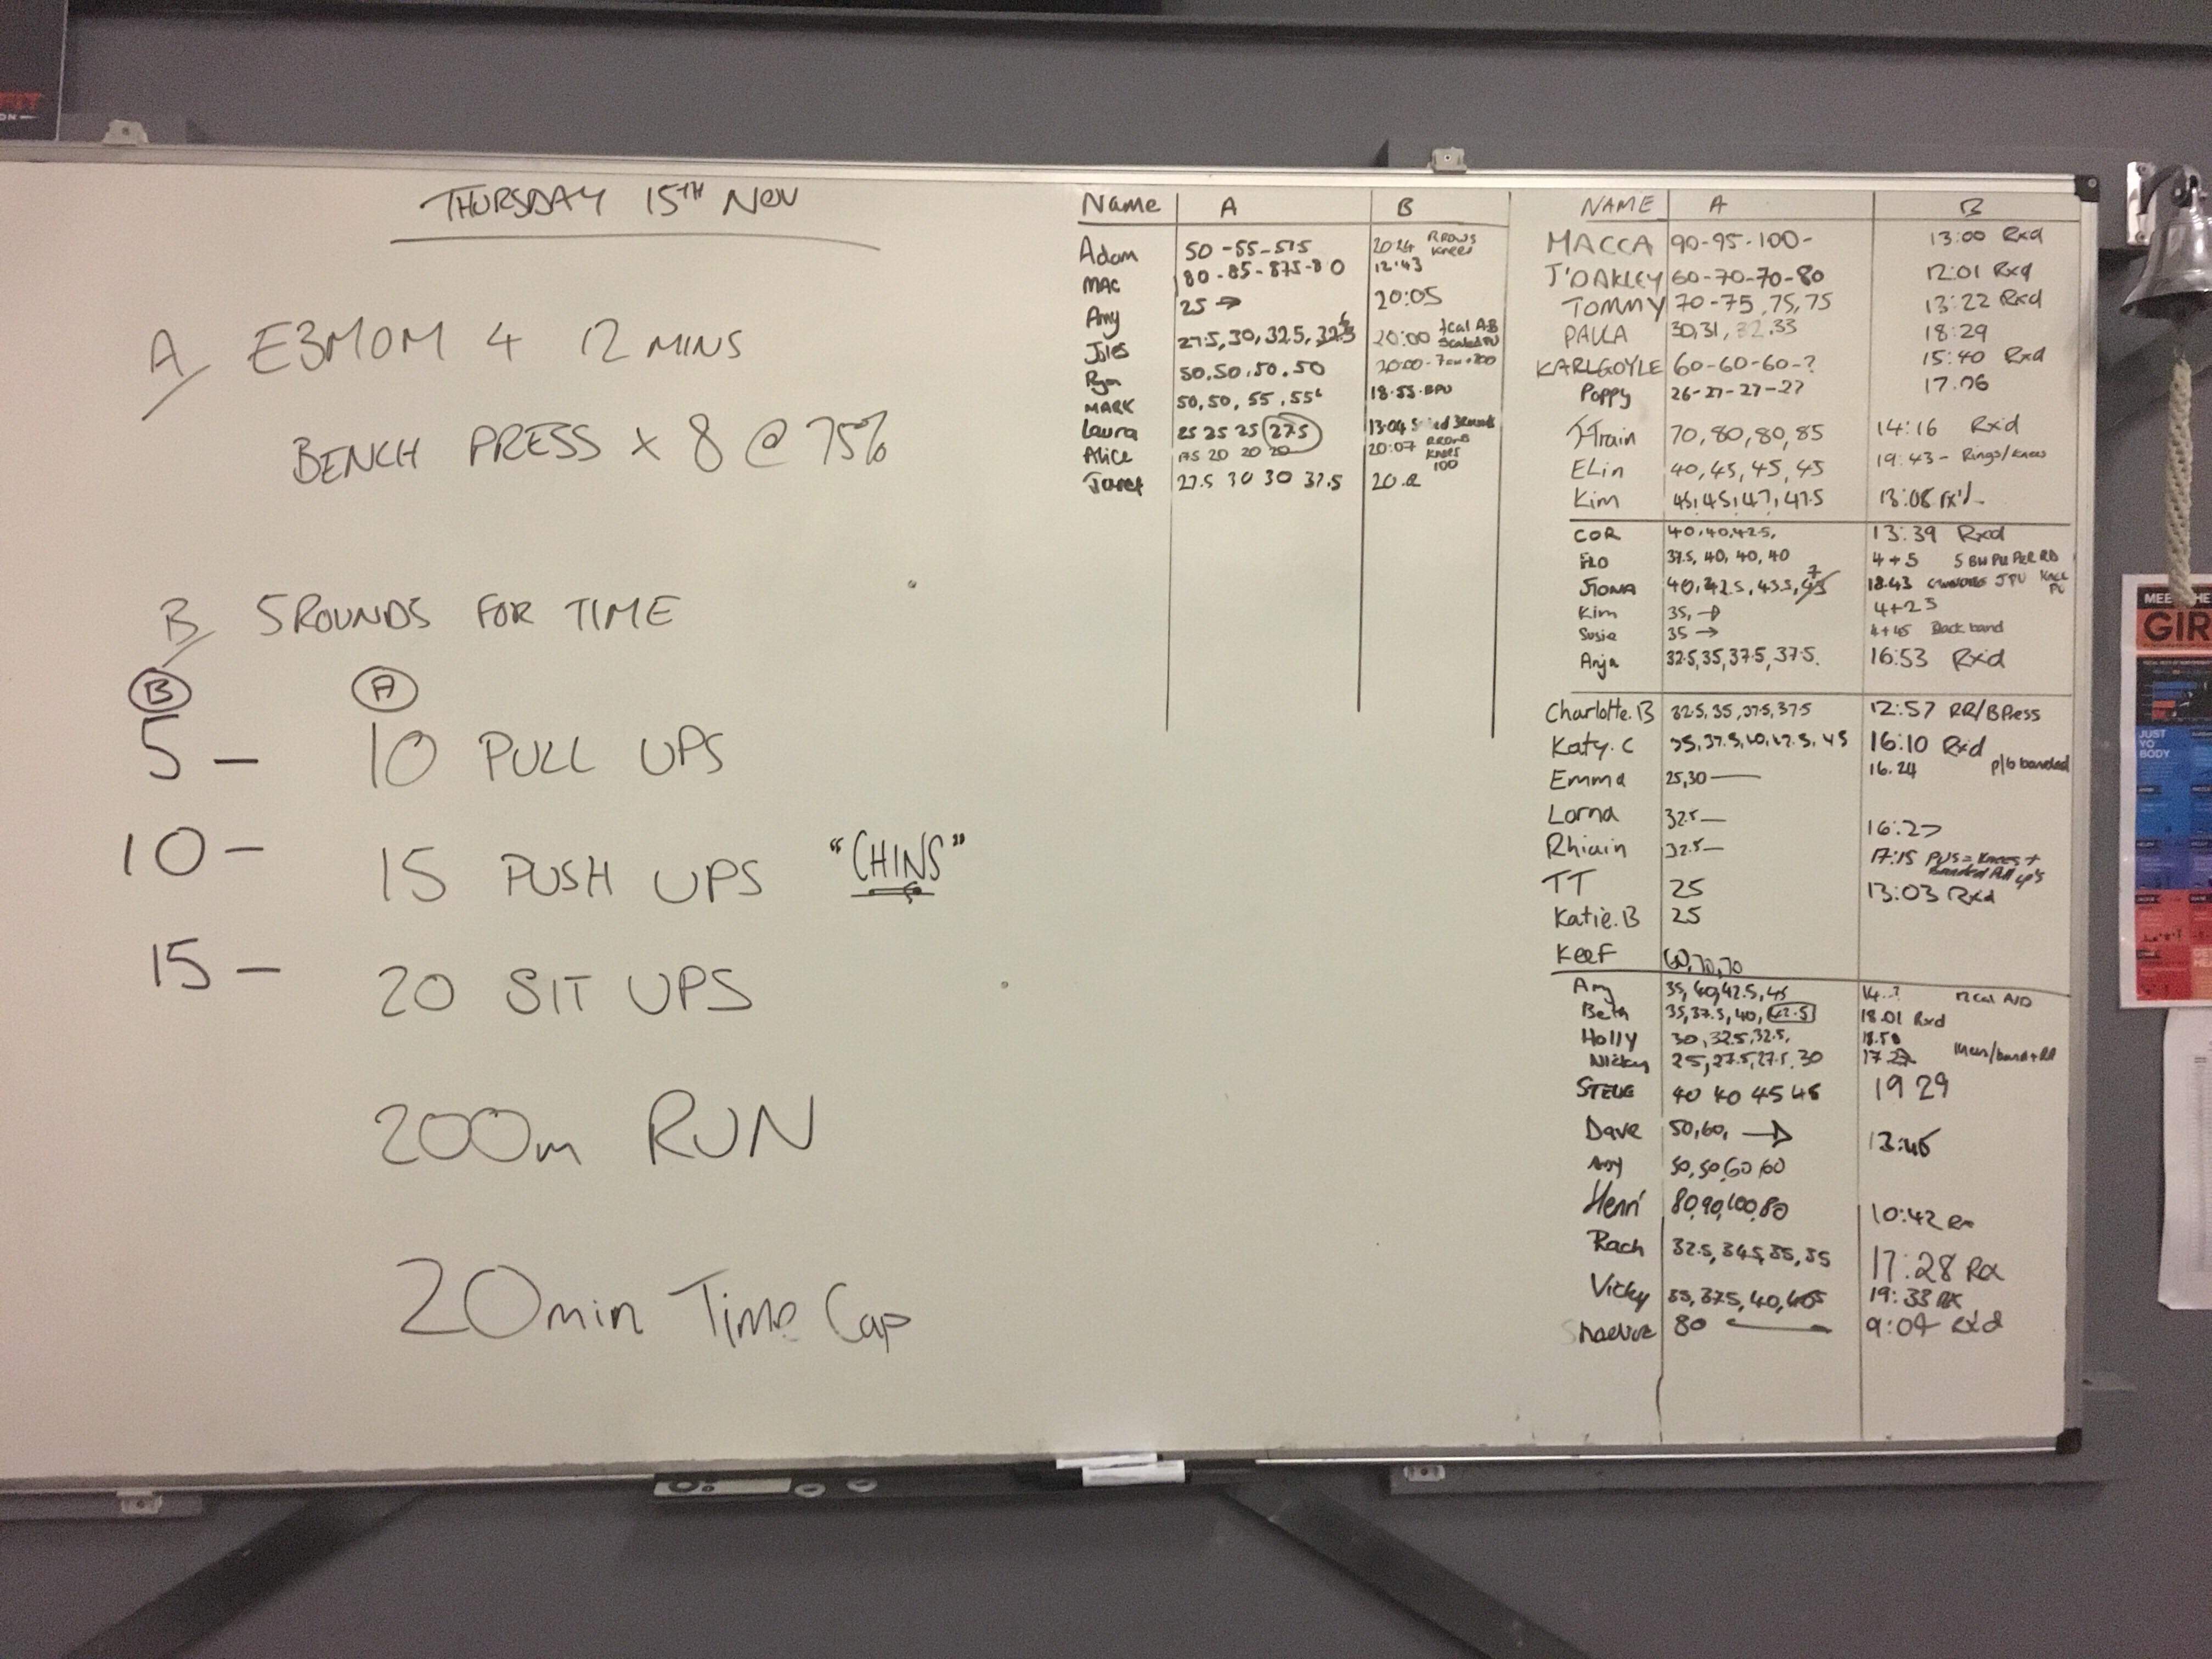 THURSDAY 15TH NOV
A/ E3MOM 4 12 MINS
BENCH PRESS x 8 @ 75%
B/ 5 ROUNDS FOR TIME
B A
5 - 10 PULL UPS
10 - 15 PUSH UPS "CHINS"
15 - 20 SIT UPS
200m RUN
20min Time Cap
Name A B
Adam 50-55-57.5 20:24 RROWS KNEES
MAC 80-85-87.5-80 12:43
Amy 25 → 20:05
27.5, 30, 32.5, 20:00
50, 50, 50, 50 20:00
MARK 50, 50, 55, 55 18:55 BPU
Laura 25 25 25 27.5 13:04
Alice 17.5 20 20 20 20:07 RROWS KNEES
27.5 30 30 32.5
NAME A B
MACCA 90-95-100- 13:00 Rxd
J'OAKLEY 60-70-70-80 12:01 Rxd
TOMMY 70-75, 75, 75 13:22 Rxd
PAULA 30, 31, 32, 33 18:29
KARLGOYLE 60-60-60-? 15:40 Rxd
Poppy 26-27-27-27 17.06
J-Train 70, 80, 80, 85 14:16 Rx'd
ELin 40, 45, 45, 45 19:43 - Rings/knees
Kim 45, 45, 47, 47.5 13:08 rx'd
COR 40, 40, 42.5, 13:39 Rxd
FLO 37.5, 40, 40, 40 4+5 5 BW PU PER RD
FIONA 40, 42.5, 43.5, 18:43
Kim 35, → 4+25
Susie 35 → 4+45 Black band
Anja 32.5, 35, 37.5, 37.5. 16:53 Rxd
Charlotte.B 32.5, 35, 37.5, 37.5 12:57 RR/BPress
Katy.C 35, 37.5, 40, 42.5, 45 16:10 Rxd
Emma 25, 30 — 16.24 p/u banded
Lorna 32.5 — 16:27
Rhiain 32.5 — 17:15 PUS = Knees + Banded Pull up's
TT 25 13:03 Rxd
Katie.B 25
KEEF 60, 70, 70
Amy 35, 40, 42.5, 45 14.? 12 Cal A/D
Beth 35, 37.5, 40, 42.5 18.01 Rxd
Holly 30, 32.5, 32.5, 18.50
Nicky 25, 27.5, 27.5, 30 17.27
STEVE 40 40 45 45 19 29
Dave 50, 60, → 13:45
50, 50, 60, 60
Henri 80, 90, 100, 80 10:42 Rx
Rach 32.5, 34.5, 35, 35 17:28 Rx
Vicky 35, 37.5, 40, 19:33 RX
80 9:04 Rx'd
GIR
JUST
YO
BODY